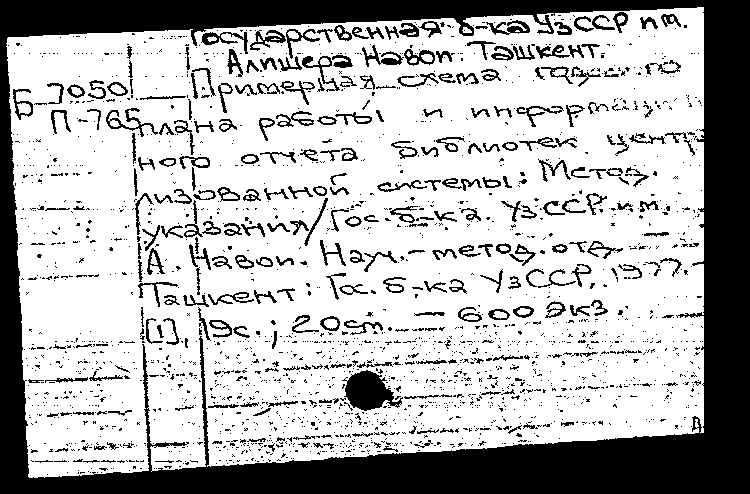 Государственная б-ка УзССР им.
Алишера Навои. Ташкент.
Б 7050
П-765
Примерная схема годового
плана работы и информацион
ного отчета библиотек центра
лизованной системы: Метод.
указания/Гос. б-ка УзССР им.
А. Навои. Науч.-метод. отд. —
Ташкент: Гос. б-ка УзССР, 1977. -
[1], 19с.; 20см. — 600 экз.